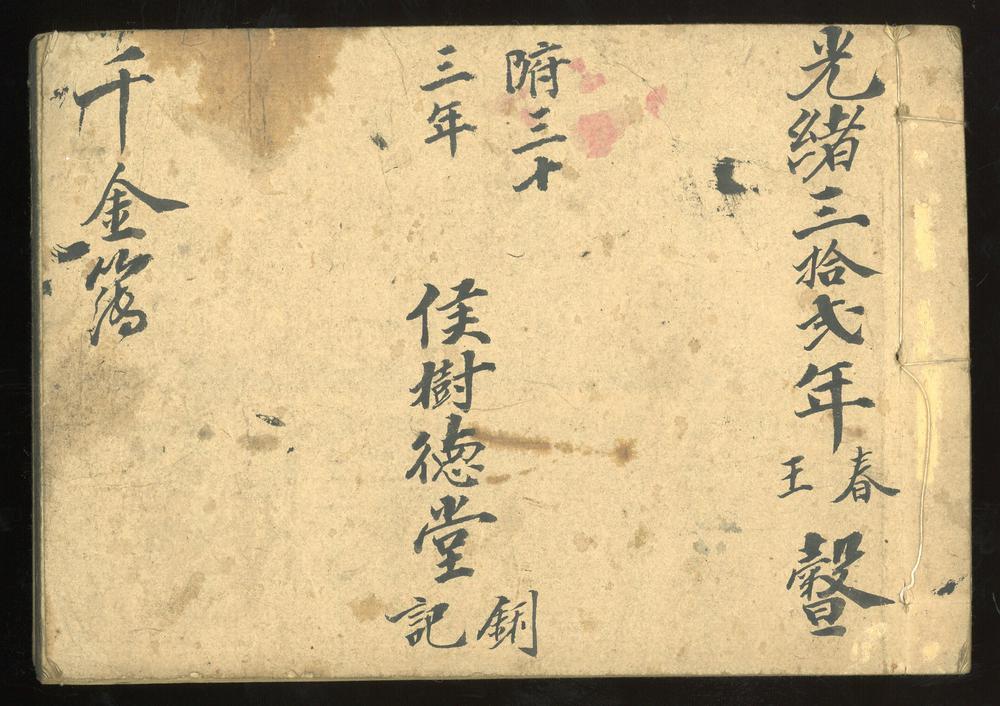 光緒三拾弍年春王穀旦
附三十
三年
侯樹德堂
記
千金簿